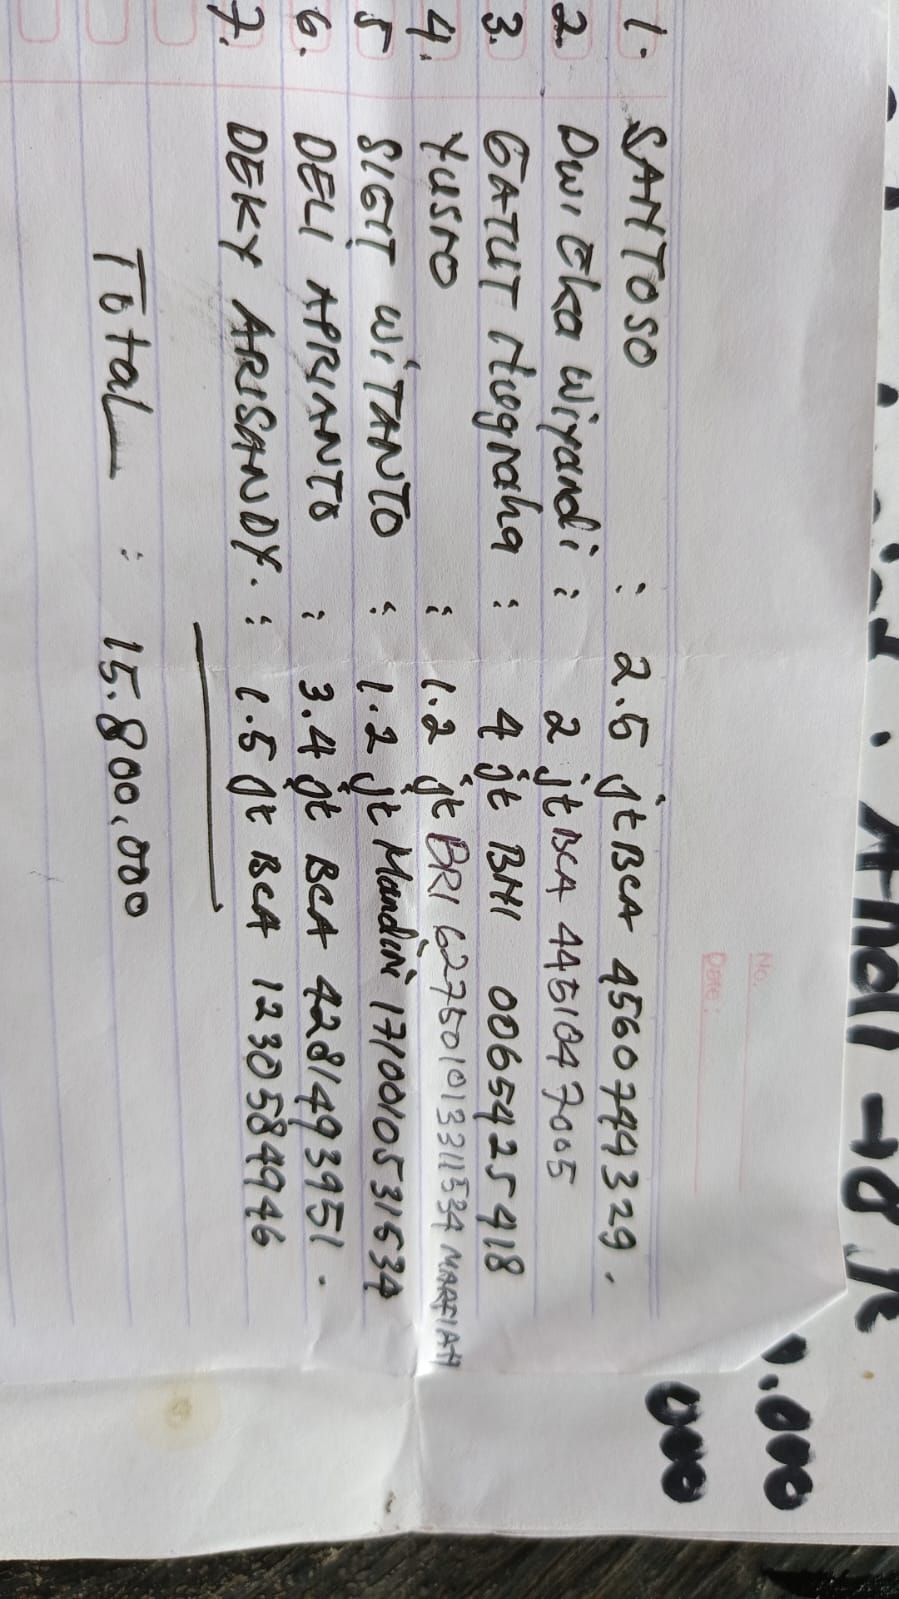 No.
Date:
1. SANTOSO : 2.5 jt BCA 4560749329.
2. Dwi Eka Wiyandi : 2 jt BCA 4451047005
3. GATUT Nugraha : 4 jt BNI 0065425418
4. Yusro : 1.2 jt BRI 627501013311534 MARFIAH
5 SIGIT WITANTO : 1.2 jt Mandiri 1710010531534
6. DELI APRIANTO : 3.4 jt BCA 4281493951.
7. DEKY ARISANDY. : 1.5 jt BCA 1230584946
Total : 15.800.000
000
.000